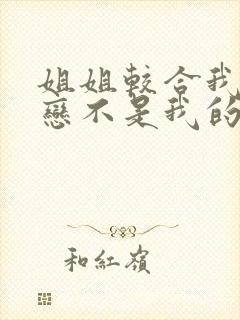 姐姐較合我
戀不是我的
和紅嶺